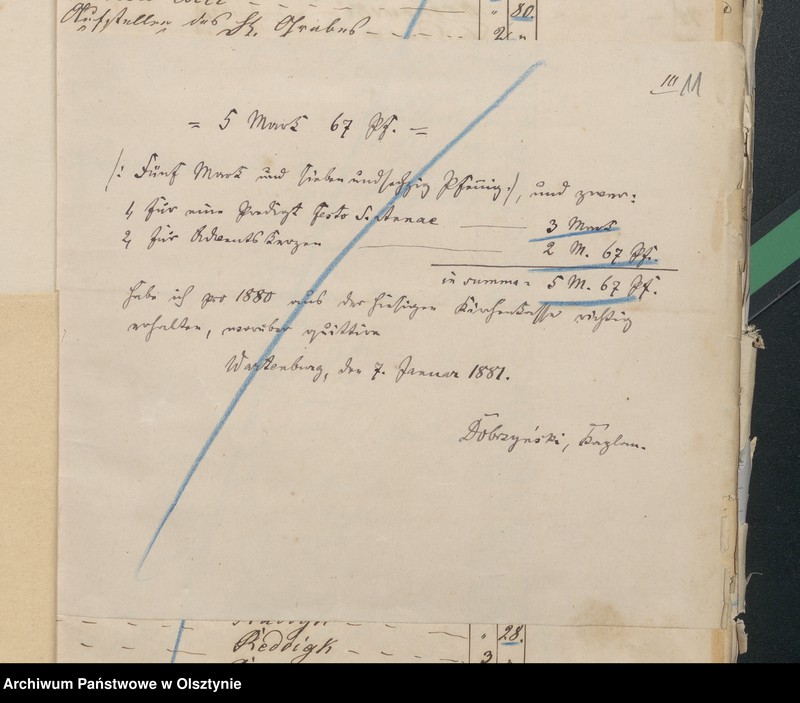 " 80.
Aufstellen des H. Grabes - - - - 2 "
III 11
= 5 Mark 67 Pf. =
/: Fünf Mark und siebenundsechzig Pfennig :/, und zwar:
1, Für eine Predigt festo S. Annae — 3 Mark
2, Für Adventskerzen — 2 M. 67 Pf.
in summa = 5 M. 67 Pf.
habe ich pro 1880 aus der hiesigen Kirchenkasse richtig
erhalten, worüber quittire
Wartenburg, den 7. Januar 1881.
Dobrzyński, Kaplan.
" 28.
Reddigk - - 3 "
Archiwum Państwowe w Olsztynie